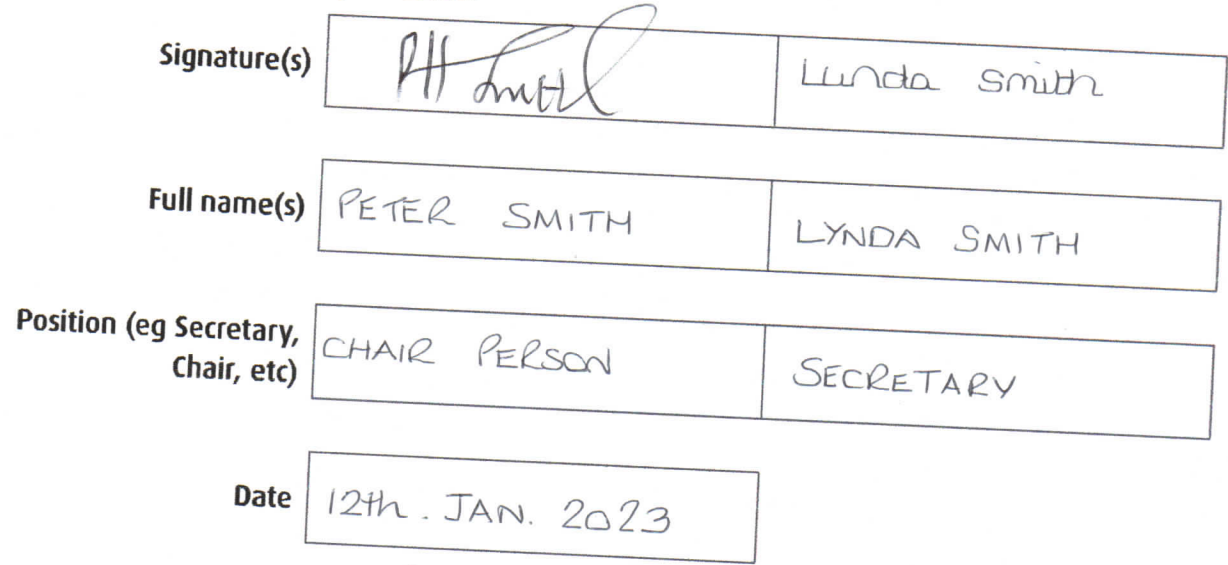 Signature(s) PH Smith Lynda Smith
Full name(s) PETER SMITH LYNDA SMITH
Position (eg Secretary,
Chair, etc) CHAIR PERSON SECRETARY
Date 12th. JAN. 2023